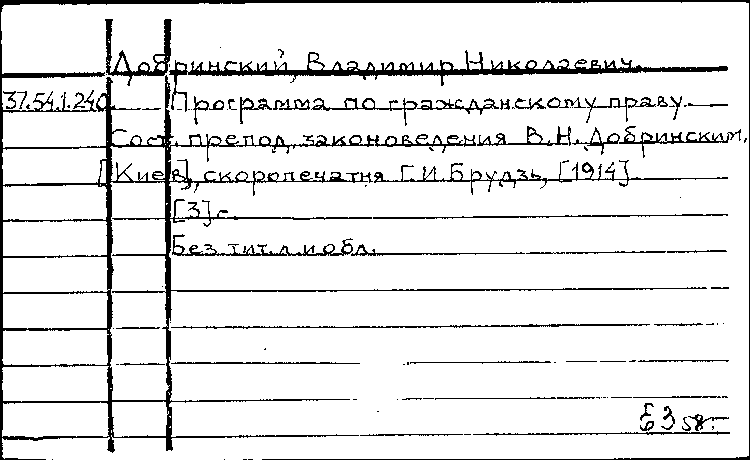 Добринский, Владимир Николаевич.
37.54.1.240. Программа по гражданскому праву.
Сост. препод. законоведения В.Н. Добринским.
[Киев], скоропечатня Г.И. Брудзь, [1914].
[3] с.
Без тит. л. и обл.